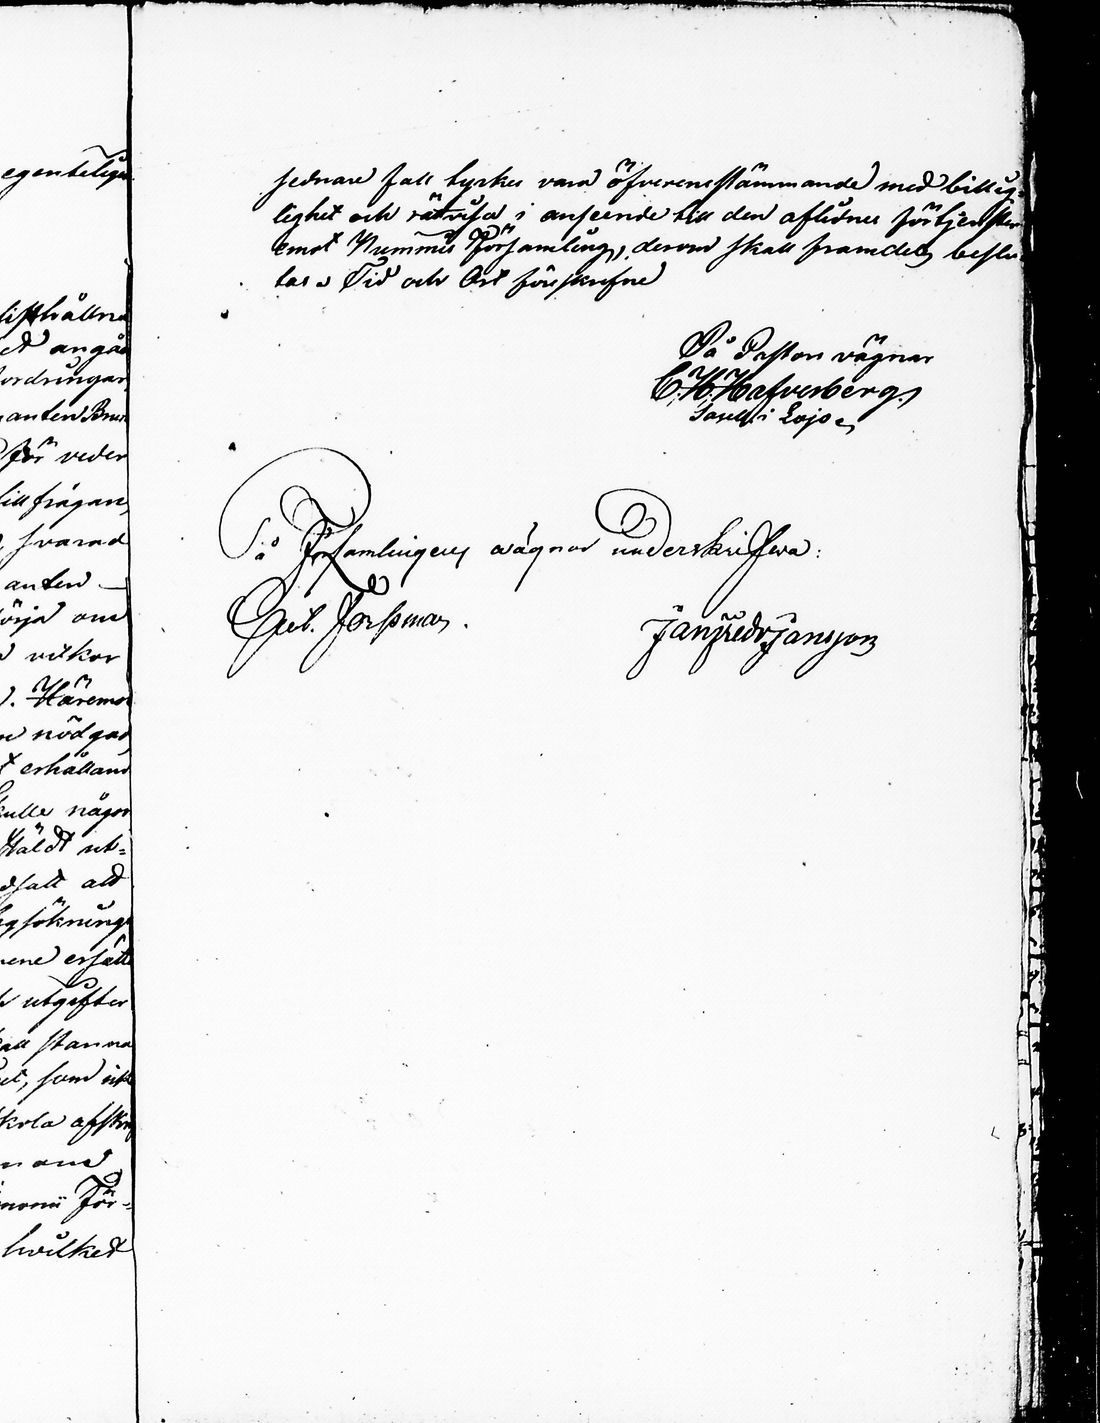 egenteligen
lifthållna
ct angå
fordringar
anten Brun
för veder
till frågan,
svarad
anten —
börja om
vilkor
Häremot
nödgas
erhålland
skulle någon
ut=
salt ald
lagsöknings
ersätt
utgifter
skall stanna
som ick
skola afskrif
För=
hvilket
sednare fall tyckes vara öfverensstämmande med billig=
lighet och rättvisa i anseende till den aflidnes förtjenster
emot Nummis Församling, derom skall framdeles beslu
tas. Tid och Ort föreskrefne
På Pastors vägnar
C. H. Hafverberg.
i Lojo
På Församlingens wägnar underskrifwa:
Gust. Forssman.
Jan Fredr Jansson